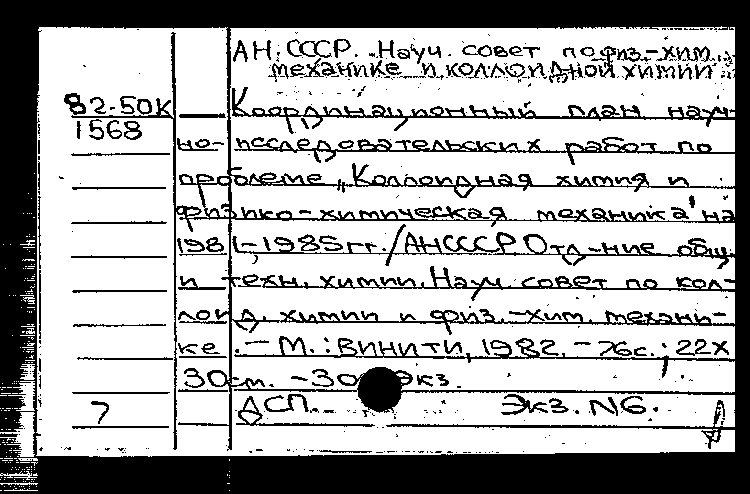 АН СССР. Науч. совет по физ.-хим.
механике и коллоидной химии
82-50К
1568
Координационный план науч-
но-исследовательских работ по
проблеме „Коллоидная химия и
физико-химическая механика" на
1981-1985 гг. / АН СССР. Отд-ние общ.
и техн. химии. Науч. совет по кол-
лоид. химии и физ.-хим. механи-
ке. - М.: ВИНИТИ, 1982. - 76с.; 22х
30см. - 30 экз.
ДСП. Экз. N6.
7